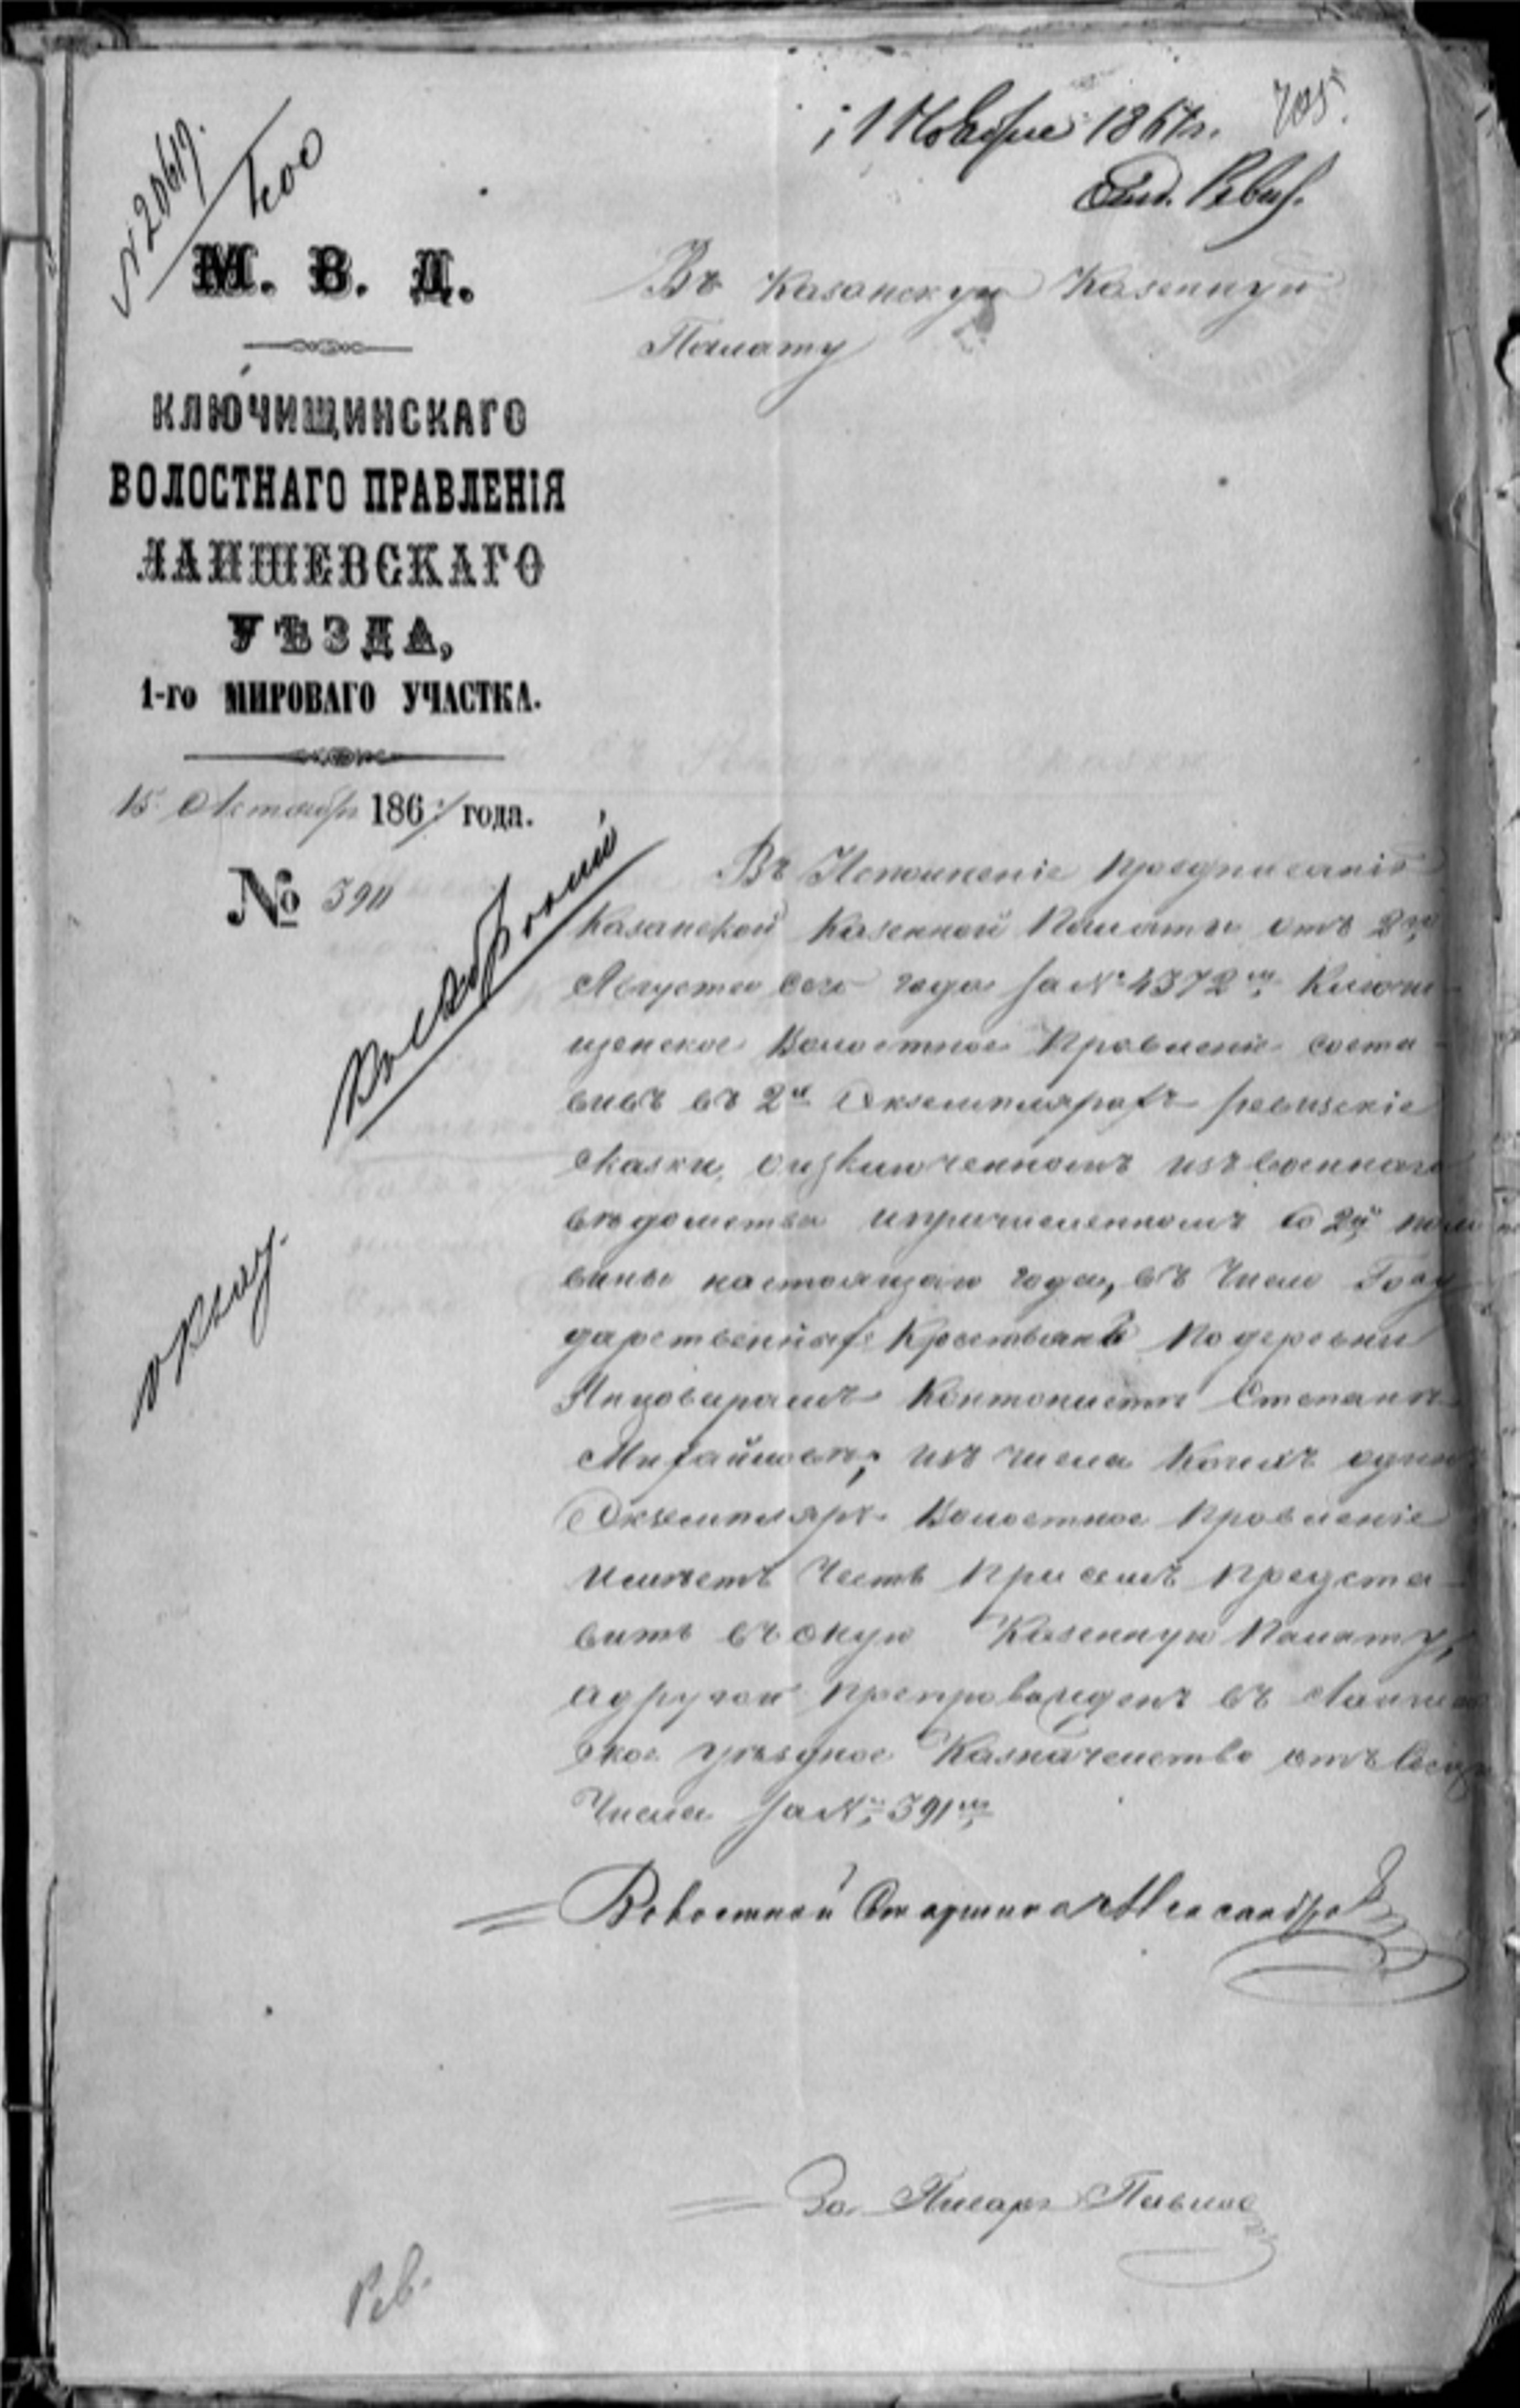 № 20619.
400
1 Ноября 1867 г.
705.
Отд. Ревиз.
М. В. Д.
КЛЮЧИЩИНСКАГО
ВОЛОСТНАГО ПРАВЛЕНІЯ
ЛАИШЕВСКАГО
УѢЗДА,
1-го МИРОВАГО УЧАСТКА.
15 Октября 1867 года.
№ 390
Въ Казанскую Казенную
Палату
Въ Исполненіе предписанія
Казанской Казенной Палаты отъ 2го
Августа сего года за № 4372м, Ключи-
щенское Волостное Правленіе соста-
вивъ въ 2х Экземплярахъ ревизскіе
сказки, оизключенномъ изъ военнаго
вѣдомства ипричисленномъ со 2й поло
вины настоящаго года, въ число Госу
дарственныхъ Крестьянъ по деревни
Кантонистѣ Степанѣ
Михайловѣ, изъ числа коихъ одинъ
Экземпляръ Волостное Правленіе
имѣетъ честь при семъ предста-
вить въ оную Казенную Палату,
адругой препровожденъ въ Лаишев
ское уѣздное Казначейство отъ сего
Числа за № 391м
Волостной Старшина Александров
За Писаря Павлов
Рев.